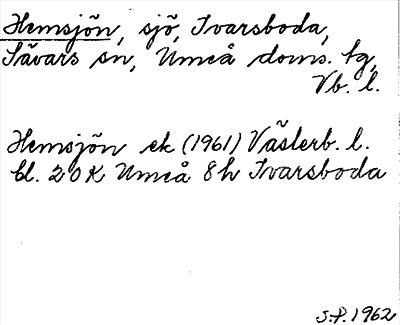 Hemsjön, sjö, Ivarsboda,
Sävars sn, Umeå doms. tg,
Vb. l.
Hemsjön ek (1961) Västerb. l.
bl. 20K Umeå 8h Ivarsboda
S.P. 1962